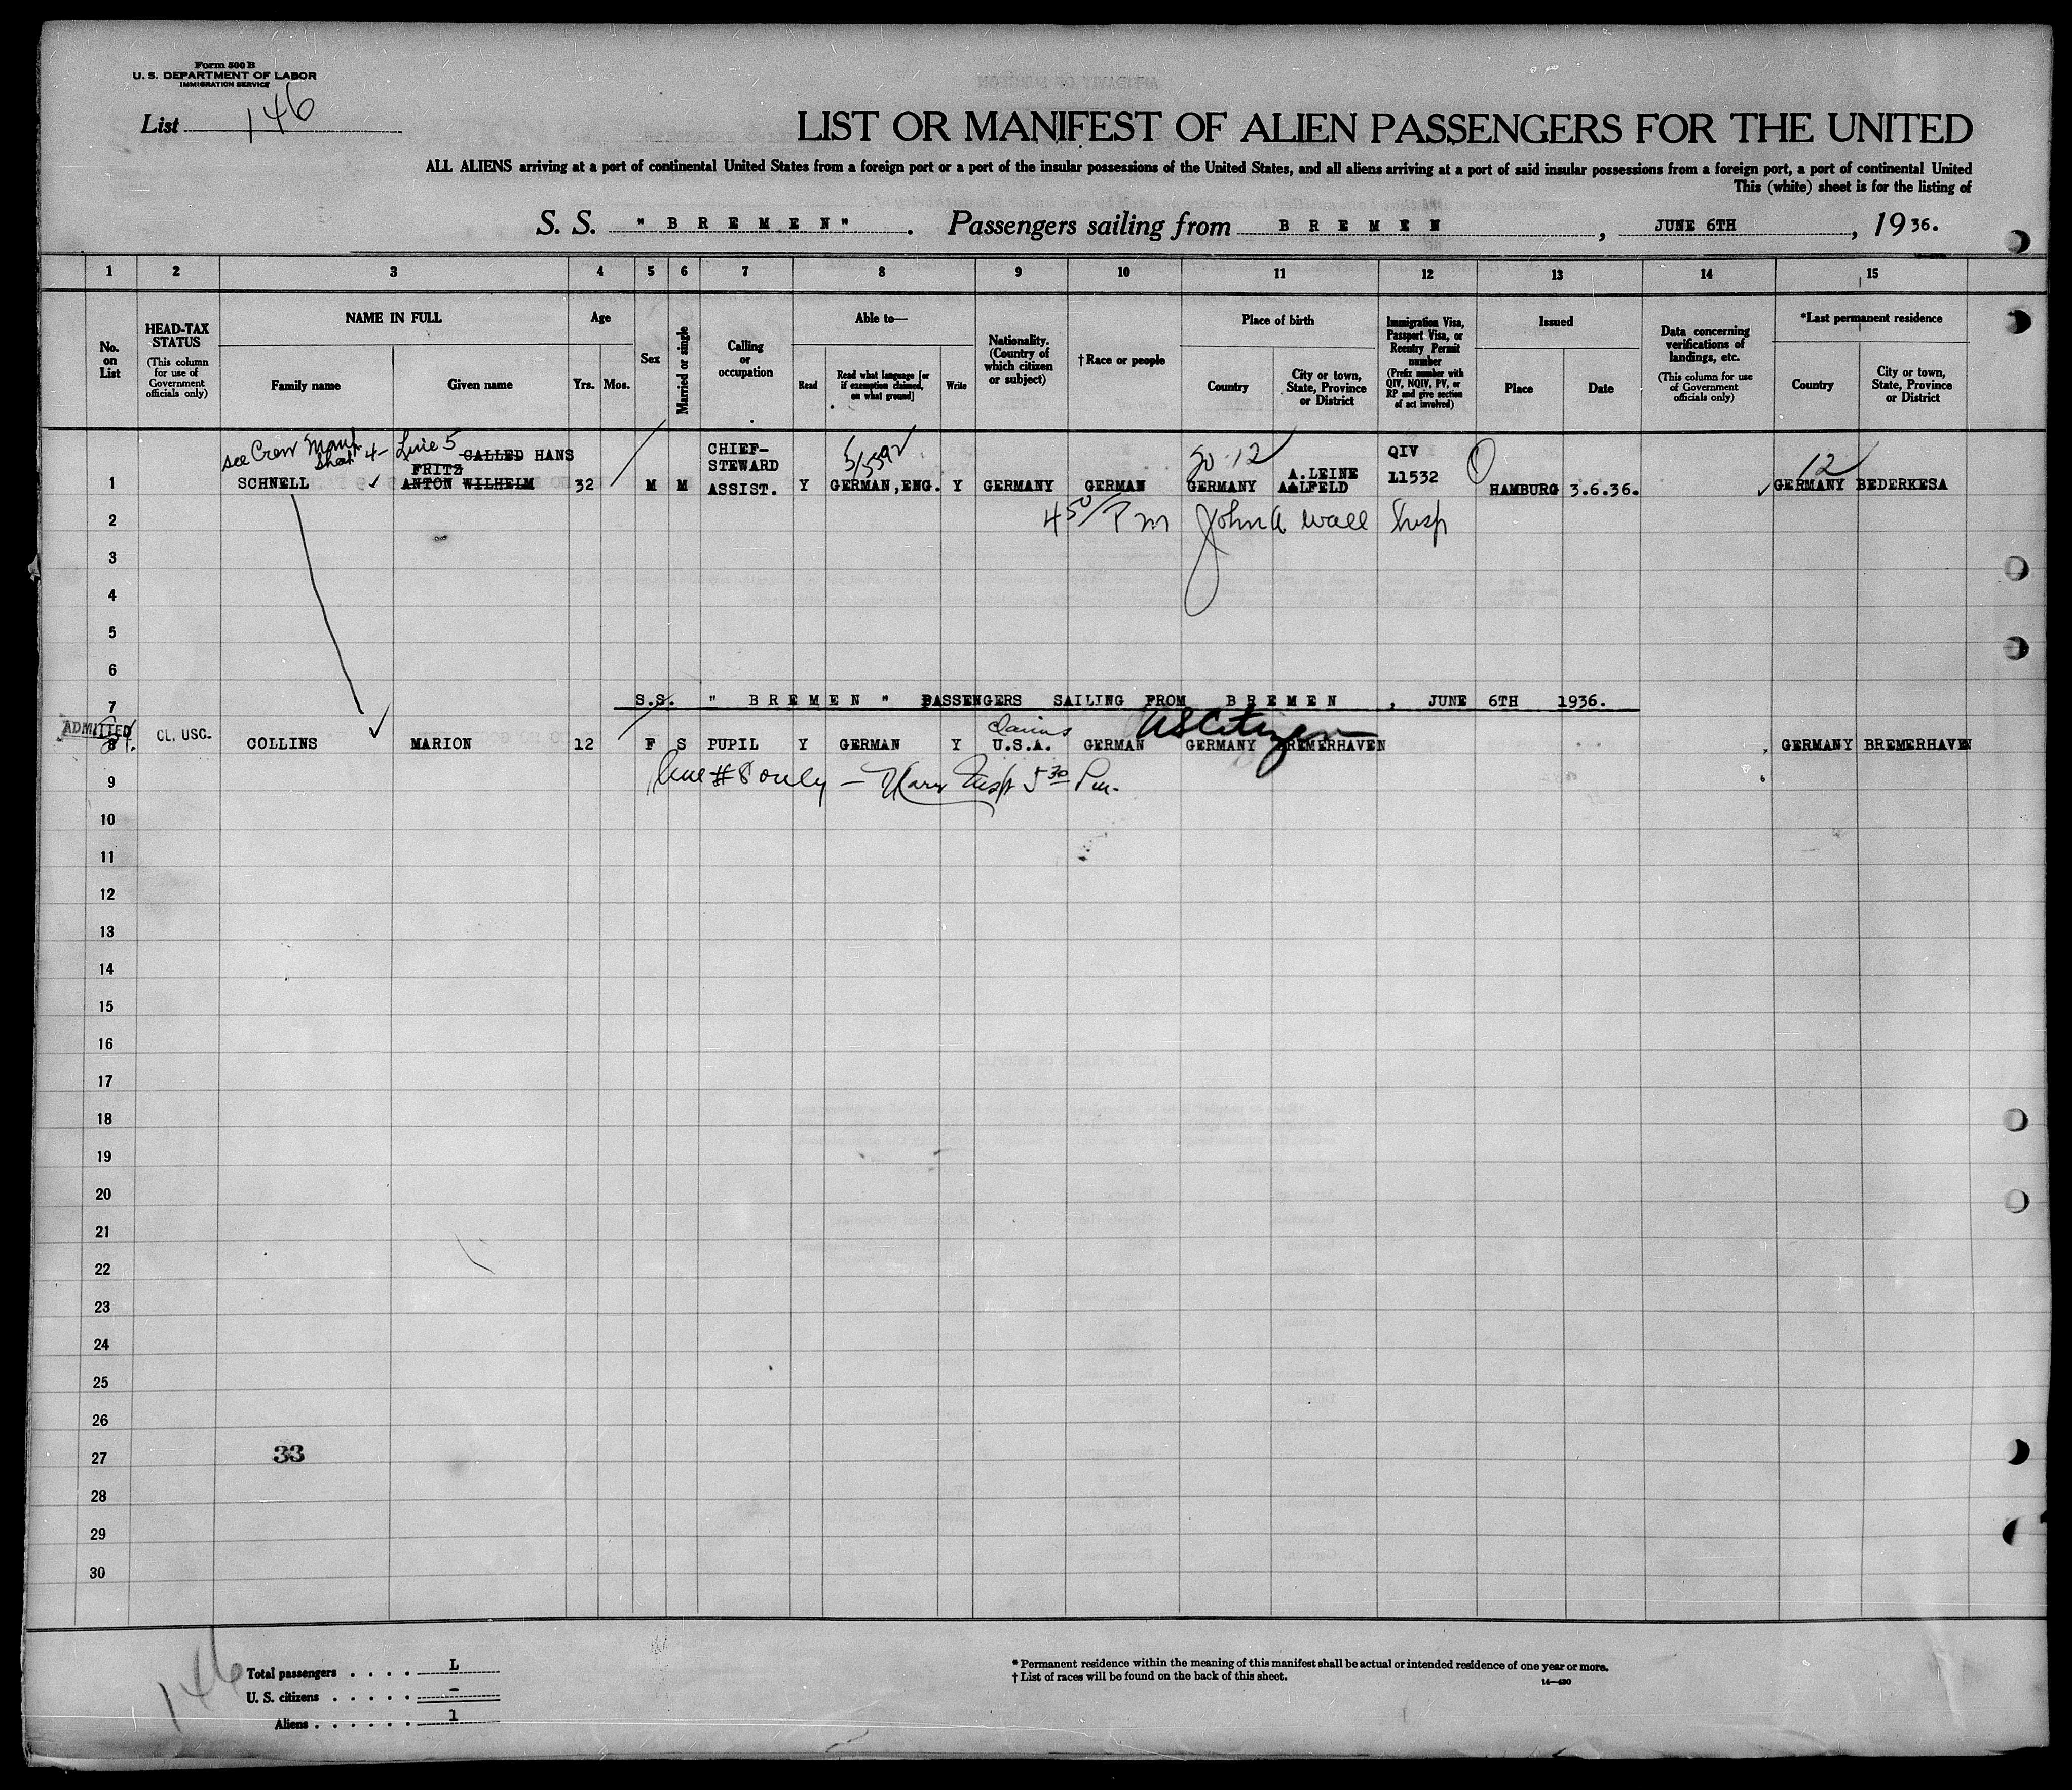 Form 500 B
U. S. DEPARTMENT OF LABOR
IMMIGRATION SERVICE
List 146
LIST OR MANIFEST OF ALIEN PASSENGERS FOR THE UNITED
ALL ALIENS arriving at a port of continental United States from a foreign port or a port of the insular possessions of the United States, and all aliens arriving at a port of said insular possessions from a foreign port, a port of continental United
This (white) sheet is for the listing of
S. S. "BREMEN". Passengers sailing from BREMEN, JUNE 6TH, 1936.
1 2 3 4 5 6 7 8 9 10 11 12 13 14 15
No. on List
HEAD-TAX STATUS
(This column for use of Government officials only)
NAME IN FULL
Family name
Given name
Age
Yrs. Mos.
Sex
Married or single
Calling or occupation
Able to—
Read
Read what language [or if exemption claimed, on what ground]
Write
Nationality. (Country of which citizen or subject)
†Race or people
Place of birth
Country
City or town, State, Province or District
Immigration Visa, Passport Visa, or Reentry Permit number
(Prefix number with QIV, NQIV, PV, or RP and give section of act involved)
Issued
Place
Date
Data concerning verifications of landings, etc.
(This column for use of Government officials only)
*Last permanent residence
Country
City or town, State, Province or District
see Crew Manf. Sheet 4- Line 5 CALLED HANS
FRITZ
CHIEF-
STEWARD
5/5592
20-12
QIV
12
1 SCHNELL ANTON WILHELM 32 M M ASSIST. Y GERMAN, ENG. Y GERMANY GERMAN GERMANY A.LEINE ALFELD L1532 HAMBURG 3.6.36. GERMANY BEDERKESA
2 4 50/ P m John A Wall Insp
3
4
5
6
7 S.S. "BREMEN" PASSENGERS SAILING FROM BREMEN, JUNE 6TH 1936.
ADMITTED
Claims
US Citizen
8 CL. USC. COLLINS MARION 12 F S PUPIL Y GERMAN Y U.S.A. GERMAN GERMANY BREMERHAVEN GERMANY BREMERHAVEN
9 Line #8 only — Insp 5 30 Pm.
10
11
12
13
14
15
16
17
18
19
20
21
22
23
24
25
26
27 33
28
29
30
146
Total passengers . . . . L
U. S. citizens . . . . . -
Aliens . . . . . . 1
* Permanent residence within the meaning of this manifest shall be actual or intended residence of one year or more.
† List of races will be found on the back of this sheet.
14—430